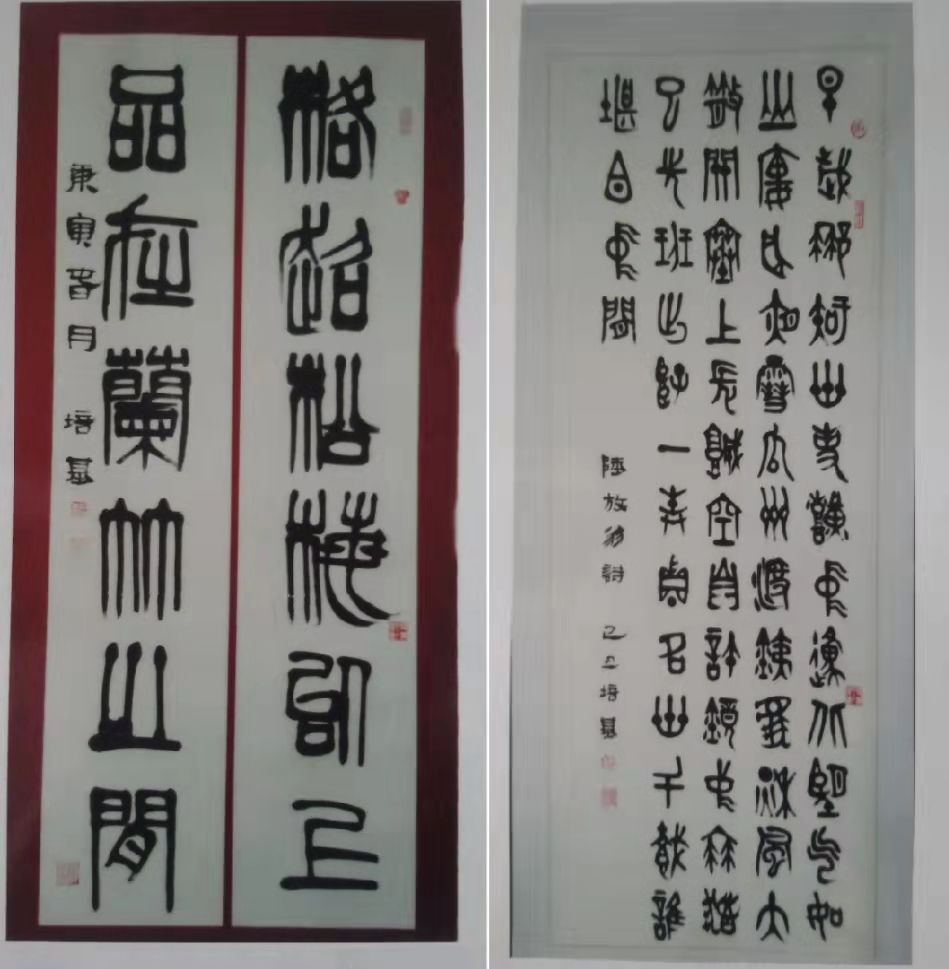 格超松梅以上
品在蘭竹之間
庚寅春月 培基
早歲那知世事艱中原北望气如
山樓船夜雪瓜州渡鐵馬秋風大
散關塞上長城空自許鏡中衰鬢
已先斑出師一表真名世千載誰
堪白中間
陸放翁詩 己丑培基